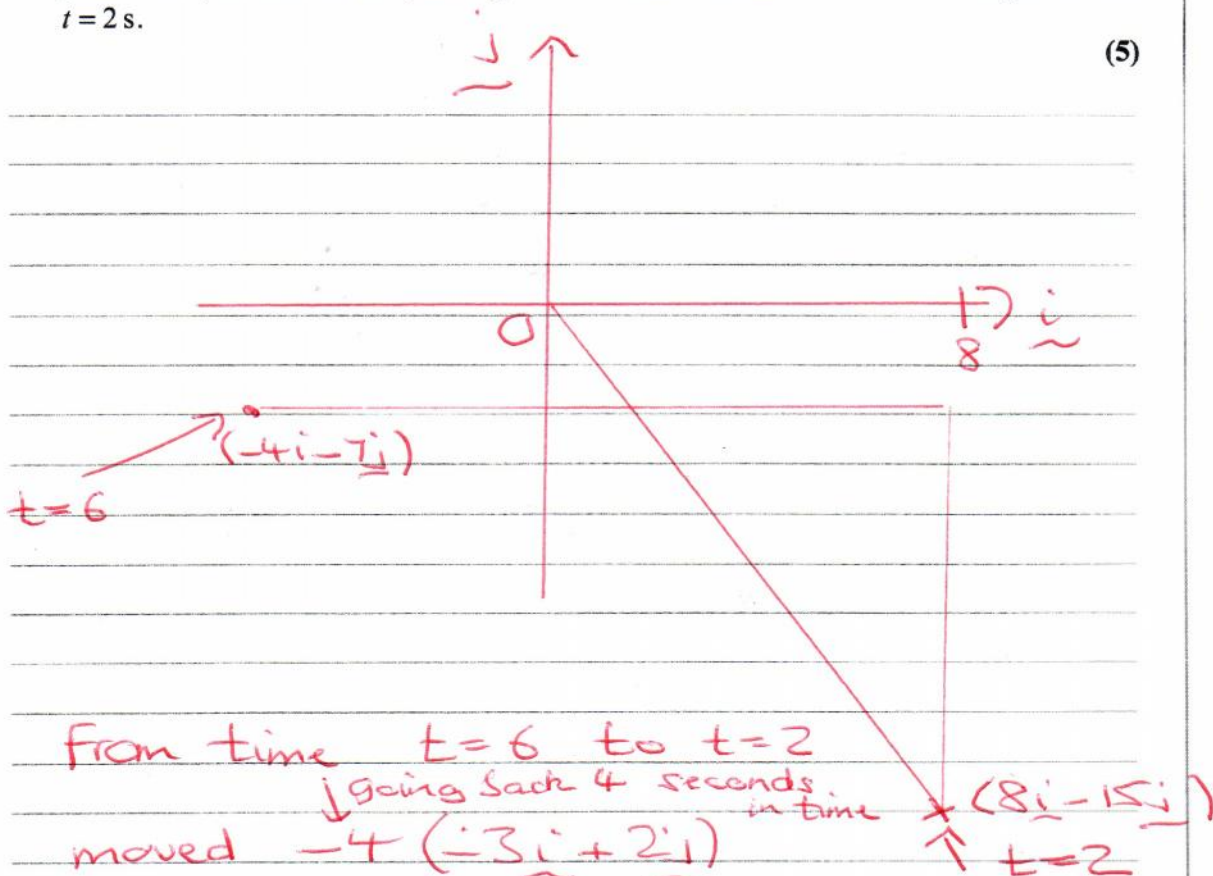 t = 2 s.
j
(5)
O
8
i
(-4i-7j)
t=6
From time t=6 to t=2
↓going back 4 seconds
in time
(8i-15j)
moved -4(-3i+2j)
t=2